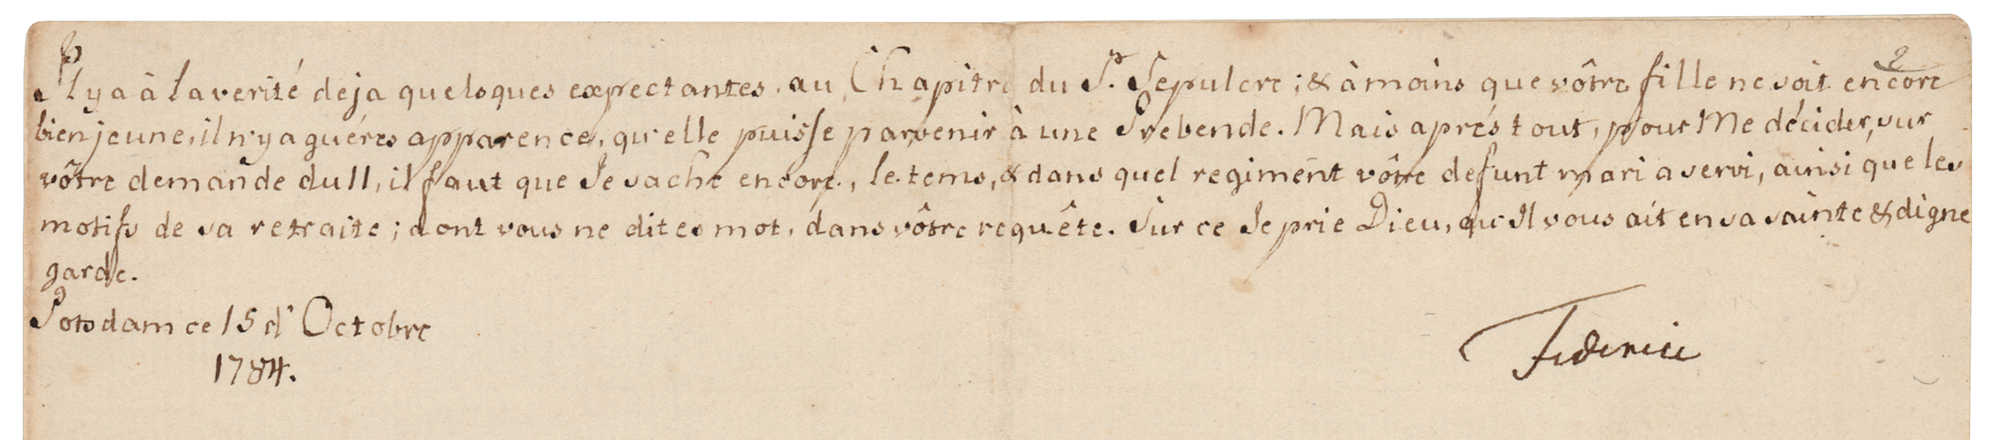 Il y a à la verité deja quelsques expectantes. au Chapitre du St. Sepulcre; & à moins que vôtre fille ne soit encore
bien jeune, il n'y a guéres apparence, qu'elle puisse parvenir à une Prebende. Mais aprés tout, pour Me décider, sur
vôtre demande du 11, il faut que Je sache encore, le tems, & dans quel regiment vôtre defunt mari a servi, ainsi que les
motifs de sa retraite; dont vous ne dites mot, dans vôtre requête. Sur ce Je prie Dieu, qu'Il vous ait en sa sainte & digne
garde.
Potsdam ce 15 d'Octobre
1784.
Federic